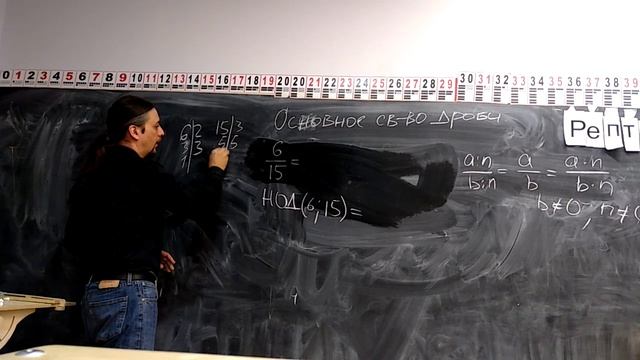 0 1 2 3 4 5 6 7 8 9 10 11 12 13 14 15 16 17 18 19 20 20 21 22 23 24 25 26 27 28 29 30 31 32 33 34 35 36 37 38 39
Основное св-во дроби
Репт
6|2 15|3
3|3 5|5
1|
6/15 =
a:n/b:n = a/b = a·n/b·n
НОД(6;15)=
b≠0, n≠0